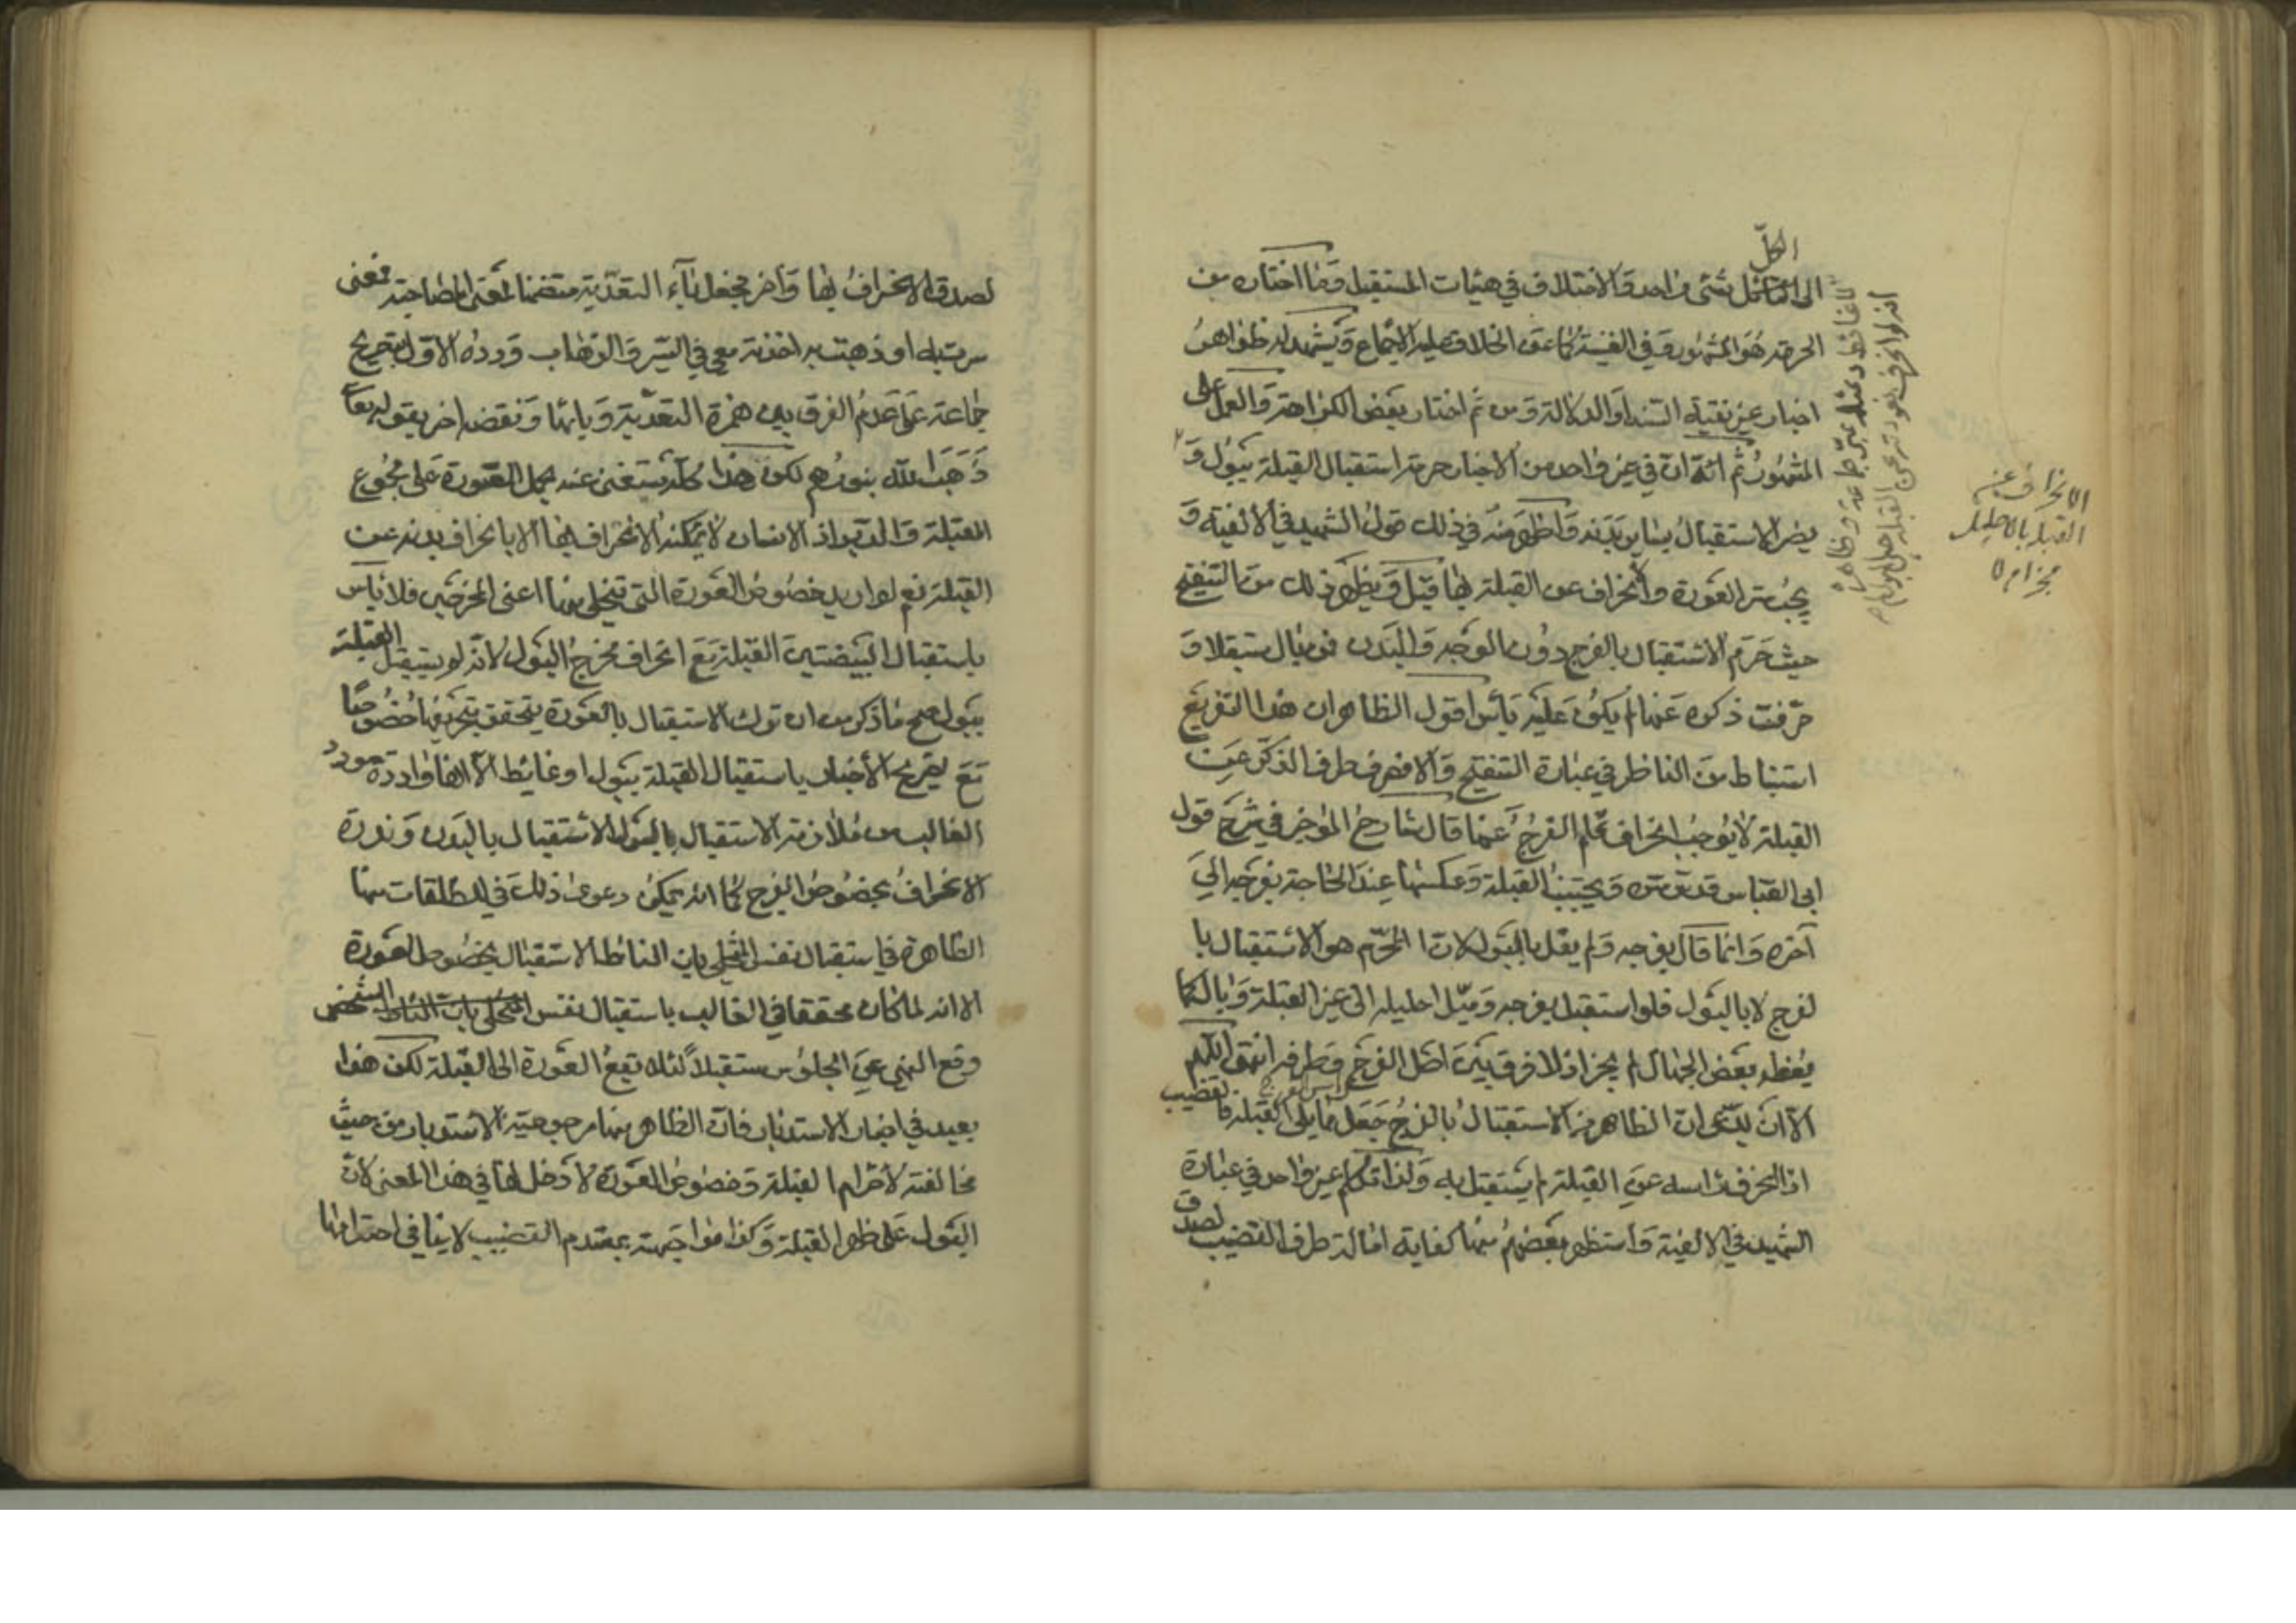 الكلّ
الى القاعل شئ واحد والاختلاف في هيئات المستقبل وما اختاره من
الحرمة هو المشهور وفي الغنية كما عن الخلاف عليه الاجماع ويشهد له ظواهر
اخبار غير نقية السند او الدلالة ومن ثم اختار بعض الكراهة والعمل على
المشهور ثم انّه انّ في غير واحد من الاخبار حرمة استقبال القبلة ببول و
الاستقبال ببدنه واظهر منه في ذلك قول الشهيد في الالفية و
يجب ستر العورة وانحراف عن القبلة بها قيل ويظهر ذلك من التنقيح
حيث حرّم الاستقبال بالفرج دون الوجه والبدن فمن بال مستقبلا و
حرّفت ذكره عنها لم يكن عليه بأس اقول الظاهر ان هذا التفريع
استنباط من الناظر في عبارة التنقيح والا فصرف طرف الذكر عن
القبلة لا يوجب انحراف الفرج عنها قال شارح الموجز في شرح قول
ابي العباس قدس سره ويجتنب القبلة وعكسها عند الحاجة بفرجه الى
آخره وانما قال بفرجه ولم يقل بالبول لانّ المحرّم هو الاستقبال با
لفرج لا بالبول فلو استقبل بفرجه وميّل احليله الى غير القبلة وبال كما
يفعله بعض الجهال لم يجز اذ لا فرق بين اصل الفرج وطرفه انتهى اللهم
الّا ان يدّعى ان الظاهر من الاستقبال بالفرج جعل ما يلى القبلة فالقضيب
اذا انحرف رأسه عن القبلة لم يستقبل به ولذا تكلم غير واحد في عبارة
الشهيد في الالفية واستظهر بعضهم منها كفاية امالة طرف القضيب لصدق
الانحراف عن
القبلة بالاحليل
مجز ام لا
لصدق الانحراف بها وآخر بجعل باء التعدية متضمنا لمعنى المصاحبة فمعنى
سرت به او ذهبت به اخذته معي في السير والذهاب وردّه الاوّل بتصريح
جماعة على عدم الفرق بين همزة التعدية وبائها ونقضه آخر بقوله تعالى
ذهب الله بنورهم لكن هذا كلّه مستغنى عنه بحمل العورة على مجموع
القبل والدبر اذ الانسان لا يمكنه الانحراف بها الا بانحراف بدنه عن
القبلة نعم لو اريد خصوص العورة التي تتخلى منها اعنى المخرجين فلا بأس
باستقبال البيضتين القبلة مع انحراف مخرج البول لانه لو يستقبل القبلة
ببول صح ما ذكر من ان ترك الاستقبال بالعورة يتحقق بتحريفها خصوصا
مع تصريح الأخبار باستقبال القبلة ببول او غائط الّا انها واردة مورد
الغالب من ملازمة الاستقبال بالبول الاستقبال بالبدن وندرة
الانحراف بخصوص الفرج كما انه يمكن دعوى ذلك في المطلقات منها
الظاهرة في استقبال نفس المتخلى بان المناط الاستقبال بخصوص العورة
الا انه لما كان محققا في الغالب باستقبال نفس الشخص
وقع النهي عن الجلوس مستقبلا لئلا تقع العورة الى القبلة لكن هذا
بعيد في اخبار الاستدبار فان الظاهر منها مرجوحية الاستدبار من حيث
مخالفته لاحترام القبلة وخصوص العورة لا دخل لها في هذا المعنى لانّ
البول على ظهر القبلة وكذا مواجهته بمقدم القضيب لا ينافي احترامها